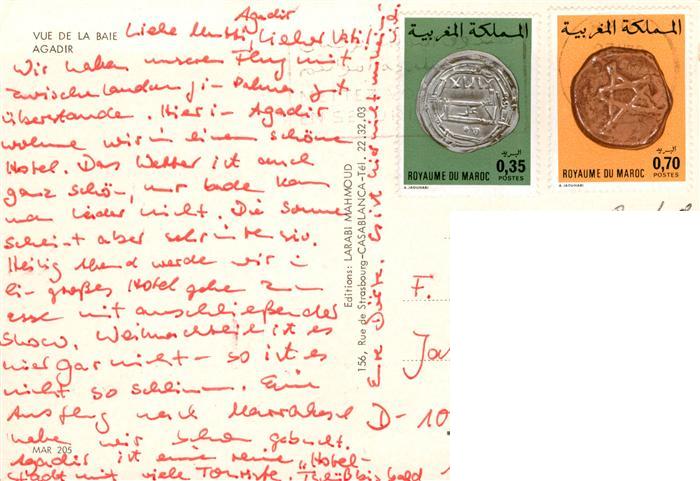 VUE DE LA BAIE
AGADIR
Agadir
Liebe Mutti, lieber Vati!
Wir haben unseren Flug mit
Zwischenlandung in Palma gut
überstanden. Hier in Agadir
wohnen wir in einem schönen
Hotel. Das Wetter ist auch
ganz schön, nur baden kann
man leider nicht. Die Sonne
scheint aber sehr intensiv.
Heilig Abend werden wir in
ein großes Hotel gehen zum
essen mit anschließender
Show. Weihnachtlich ist es
hier gar nicht - so ist es
nicht so schlimm. Einen
Ausflug nach Marrakesch
haben wir schon gebucht.
Agadir ist eine reine "Hotel-
stadt mit viele Touristen. Tschüß bis bald
Eure Dörte.
MAR 205
Editions: LARABI MAHMOUD
156, Rue de Strasbourg-CASABLANCA-Tél. 22.32.03
المملكة المغربية
البريد
0,35
ROYAUME DU MAROC POSTES
A. JAOUHARI
المملكة المغربية
البريد
0,70
ROYAUME DU MAROC POSTES
A. JAOUHARI
F.
D-10